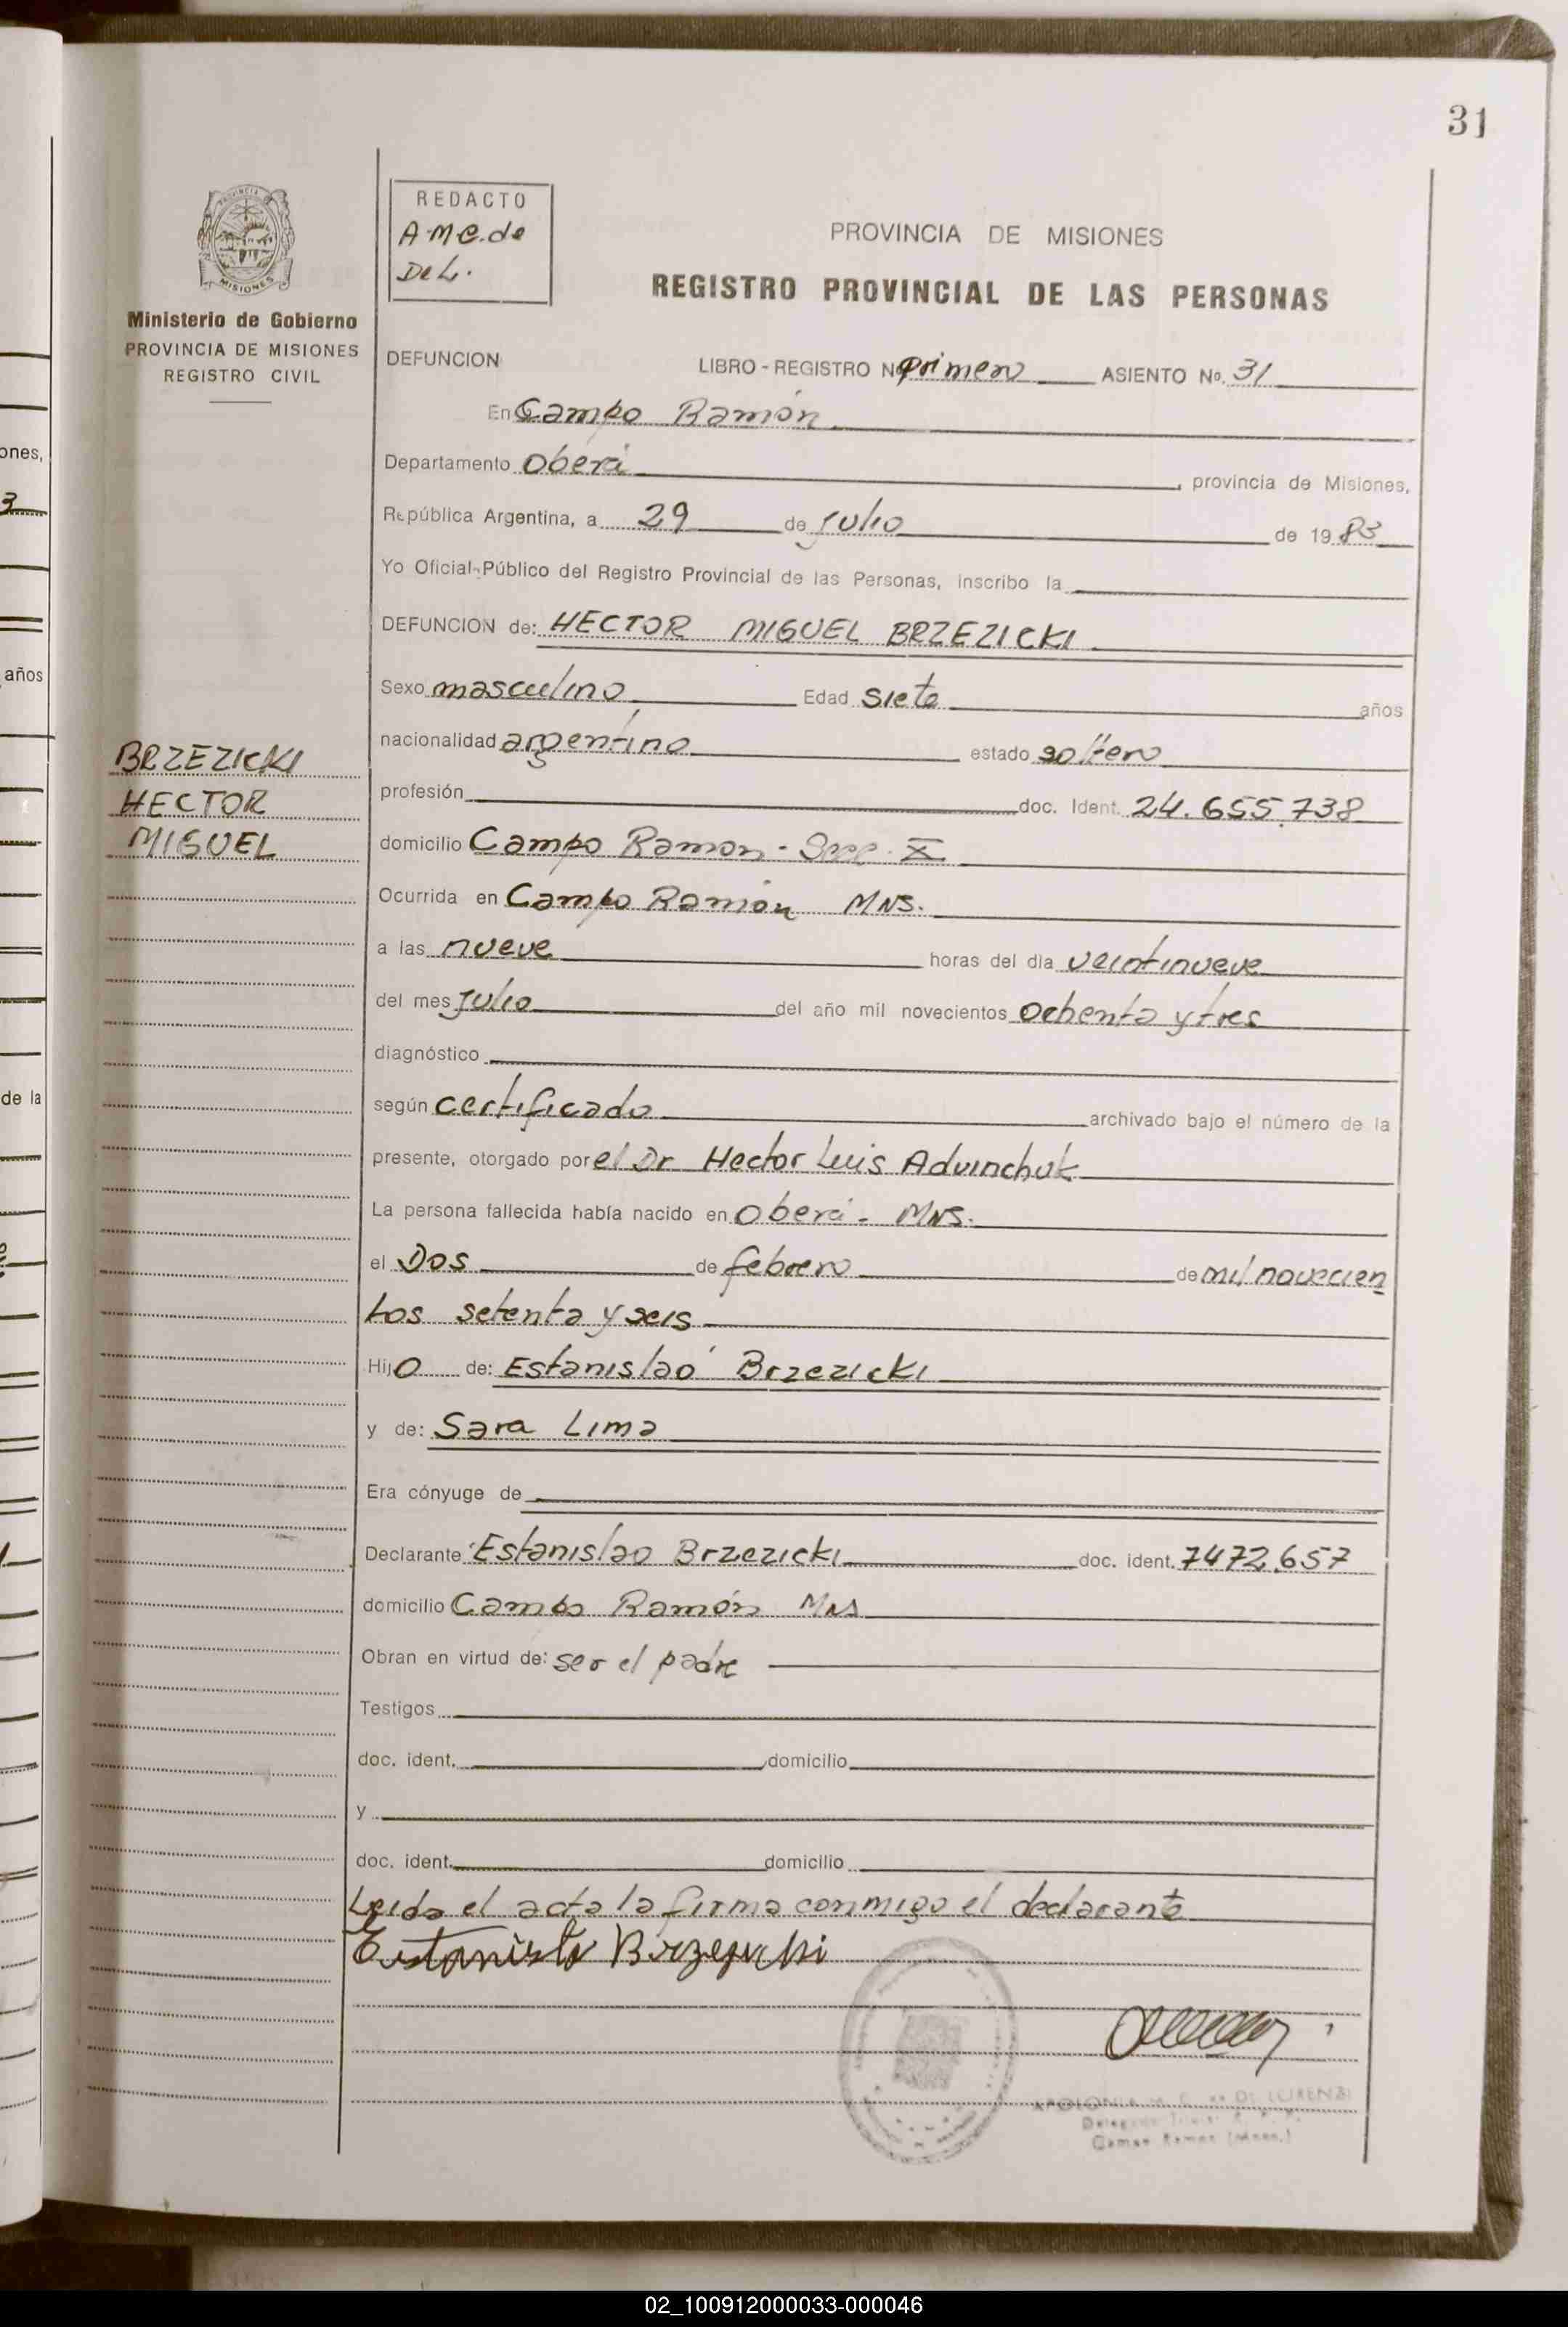 31
PROVINCIA
MISIONES
Ministerio de Gobierno
PROVINCIA DE MISIONES
REGISTRO CIVIL
REDACTO
A.M.C. de
De L.
PROVINCIA DE MISIONES
REGISTRO PROVINCIAL DE LAS PERSONAS
DEFUNCION LIBRO-REGISTRO Nº primero ASIENTO Nº. 31
En Campo Ramón
Departamento Oberá, provincia de Misiones,
República Argentina, a 29 de Julio de 1983
Yo Oficial Público del Registro Provincial de las Personas, inscribo la
DEFUNCION de: HECTOR MIGUEL BRZEZICKI
Sexo masculino Edad siete años
nacionalidad argentino estado soltero
profesión doc. Ident. 24.655.738
domicilio Campo Ramon - Secc. X
Ocurrida en Campo Ramón MNS.
a las nueve horas del día veintinueve
del mes Julio del año mil novecientos ochenta y tres
diagnóstico
según certificado archivado bajo el número de la
presente, otorgado por el Dr Hector Luis Advinchuk
La persona fallecida había nacido en Oberá - MNS.
el Dos de febrero de mil novecien
tos setenta y seis
Hijo de: Estanislao Brzezicki
y de: Sara Lima
Era cónyuge de
Declarante Estanislao Brzezicki doc. ident. 7472.657
domicilio Campo Ramón Mns
Obran en virtud de: ser el padre
Testigos
doc. ident. domicilio
y
doc. ident. domicilio
Leida el acta la firma conmigo el declarante
BRZEZICKI
HECTOR
MIGUEL
DE LORENZI
Campo Ramon
ones,
3
años
de la
02_100912000033-000046